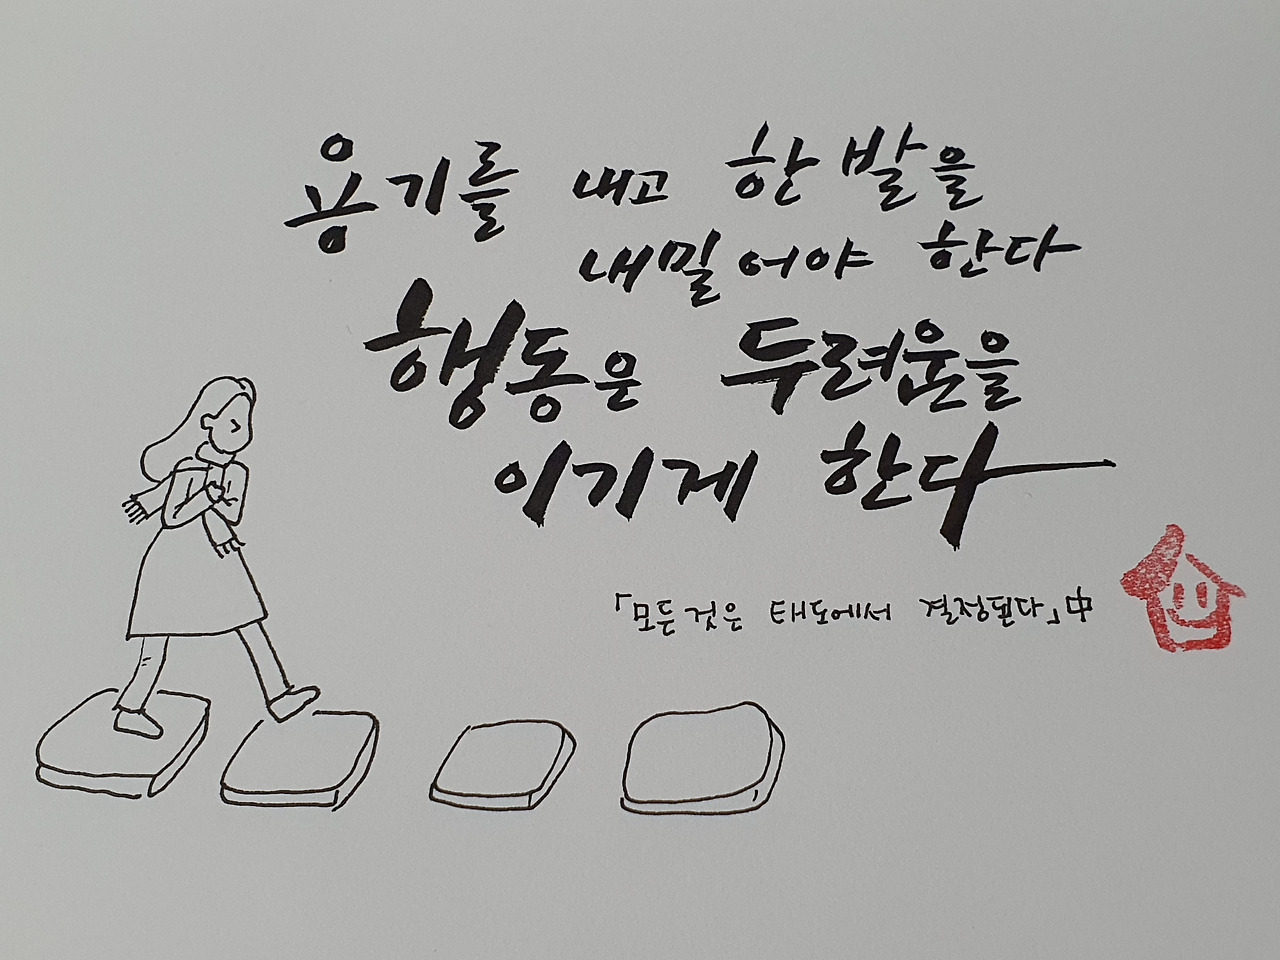 용기를 내고 한 발을
내밀어야 한다
행동은 두려운을
이기게 한다
「모든 것은 태도에서 결정된다」中